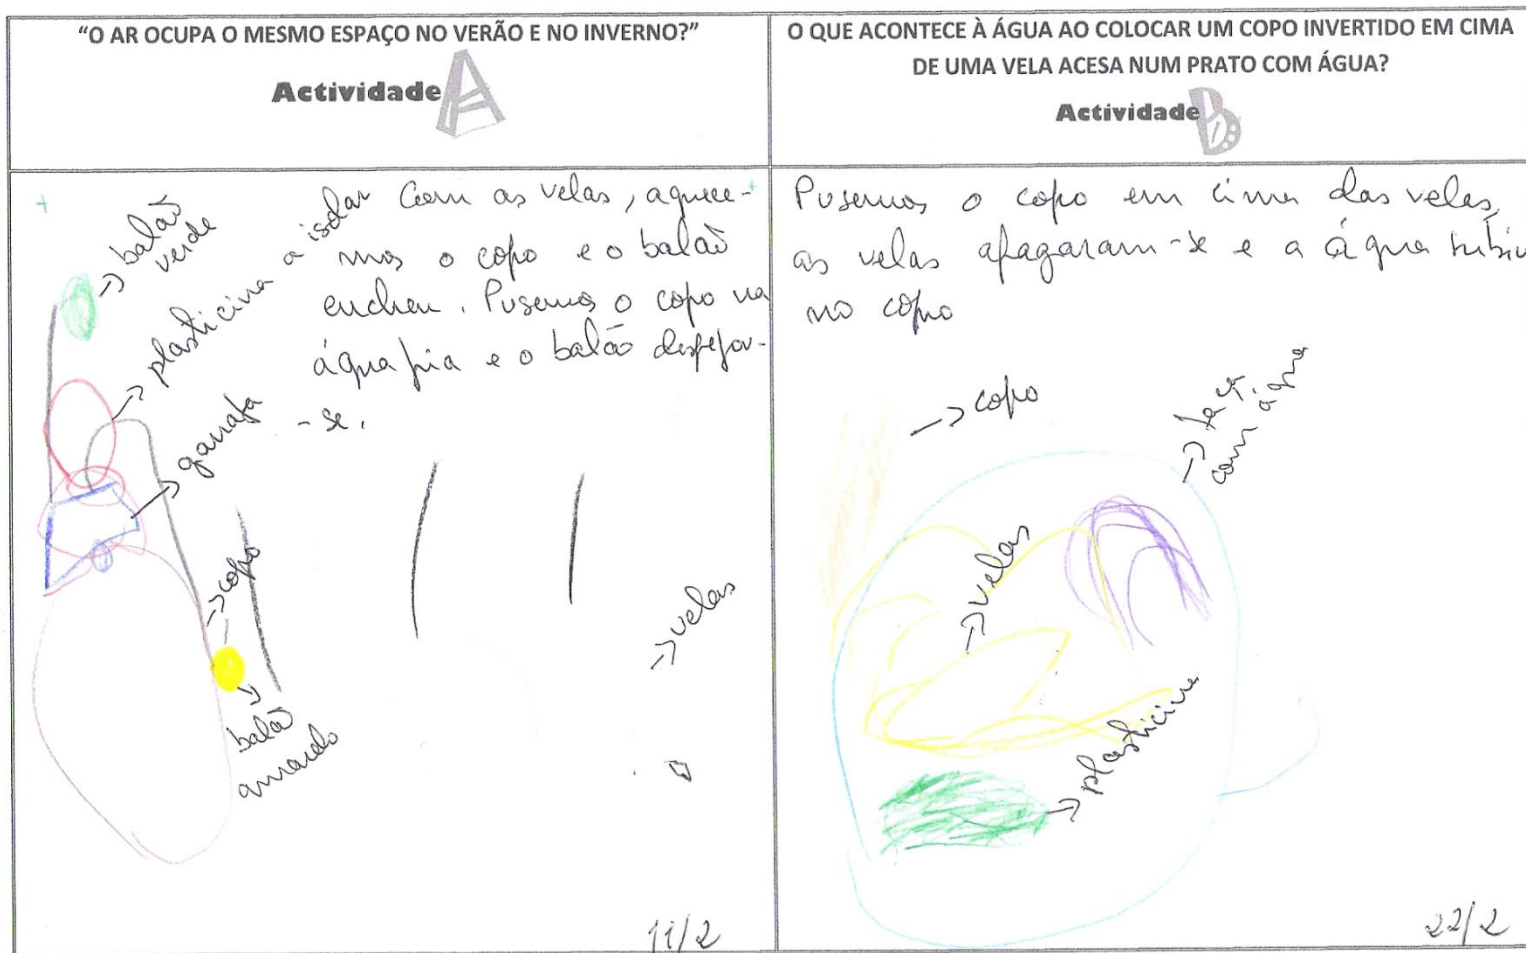 “O AR OCUPA O MESMO ESPAÇO NO VERÃO E NO INVERNO?”
Actividade A
balão
verde
plasticina a isolar
Com as velas, aquece-
mos o copo e o balão
encheu. Pusemos o copo na
água fria e o balão despejou-
-se.
garrafa
copo
balão
amarelo
velas
11/2
O QUE ACONTECE À ÁGUA AO COLOCAR UM COPO INVERTIDO EM CIMA
DE UMA VELA ACESA NUM PRATO COM ÁGUA?
Actividade B
Pusemos o copo em cima das velas,
as velas apagaram-se e a água subiu
no copo
copo
taça
com água
velas
plasticina
22/2